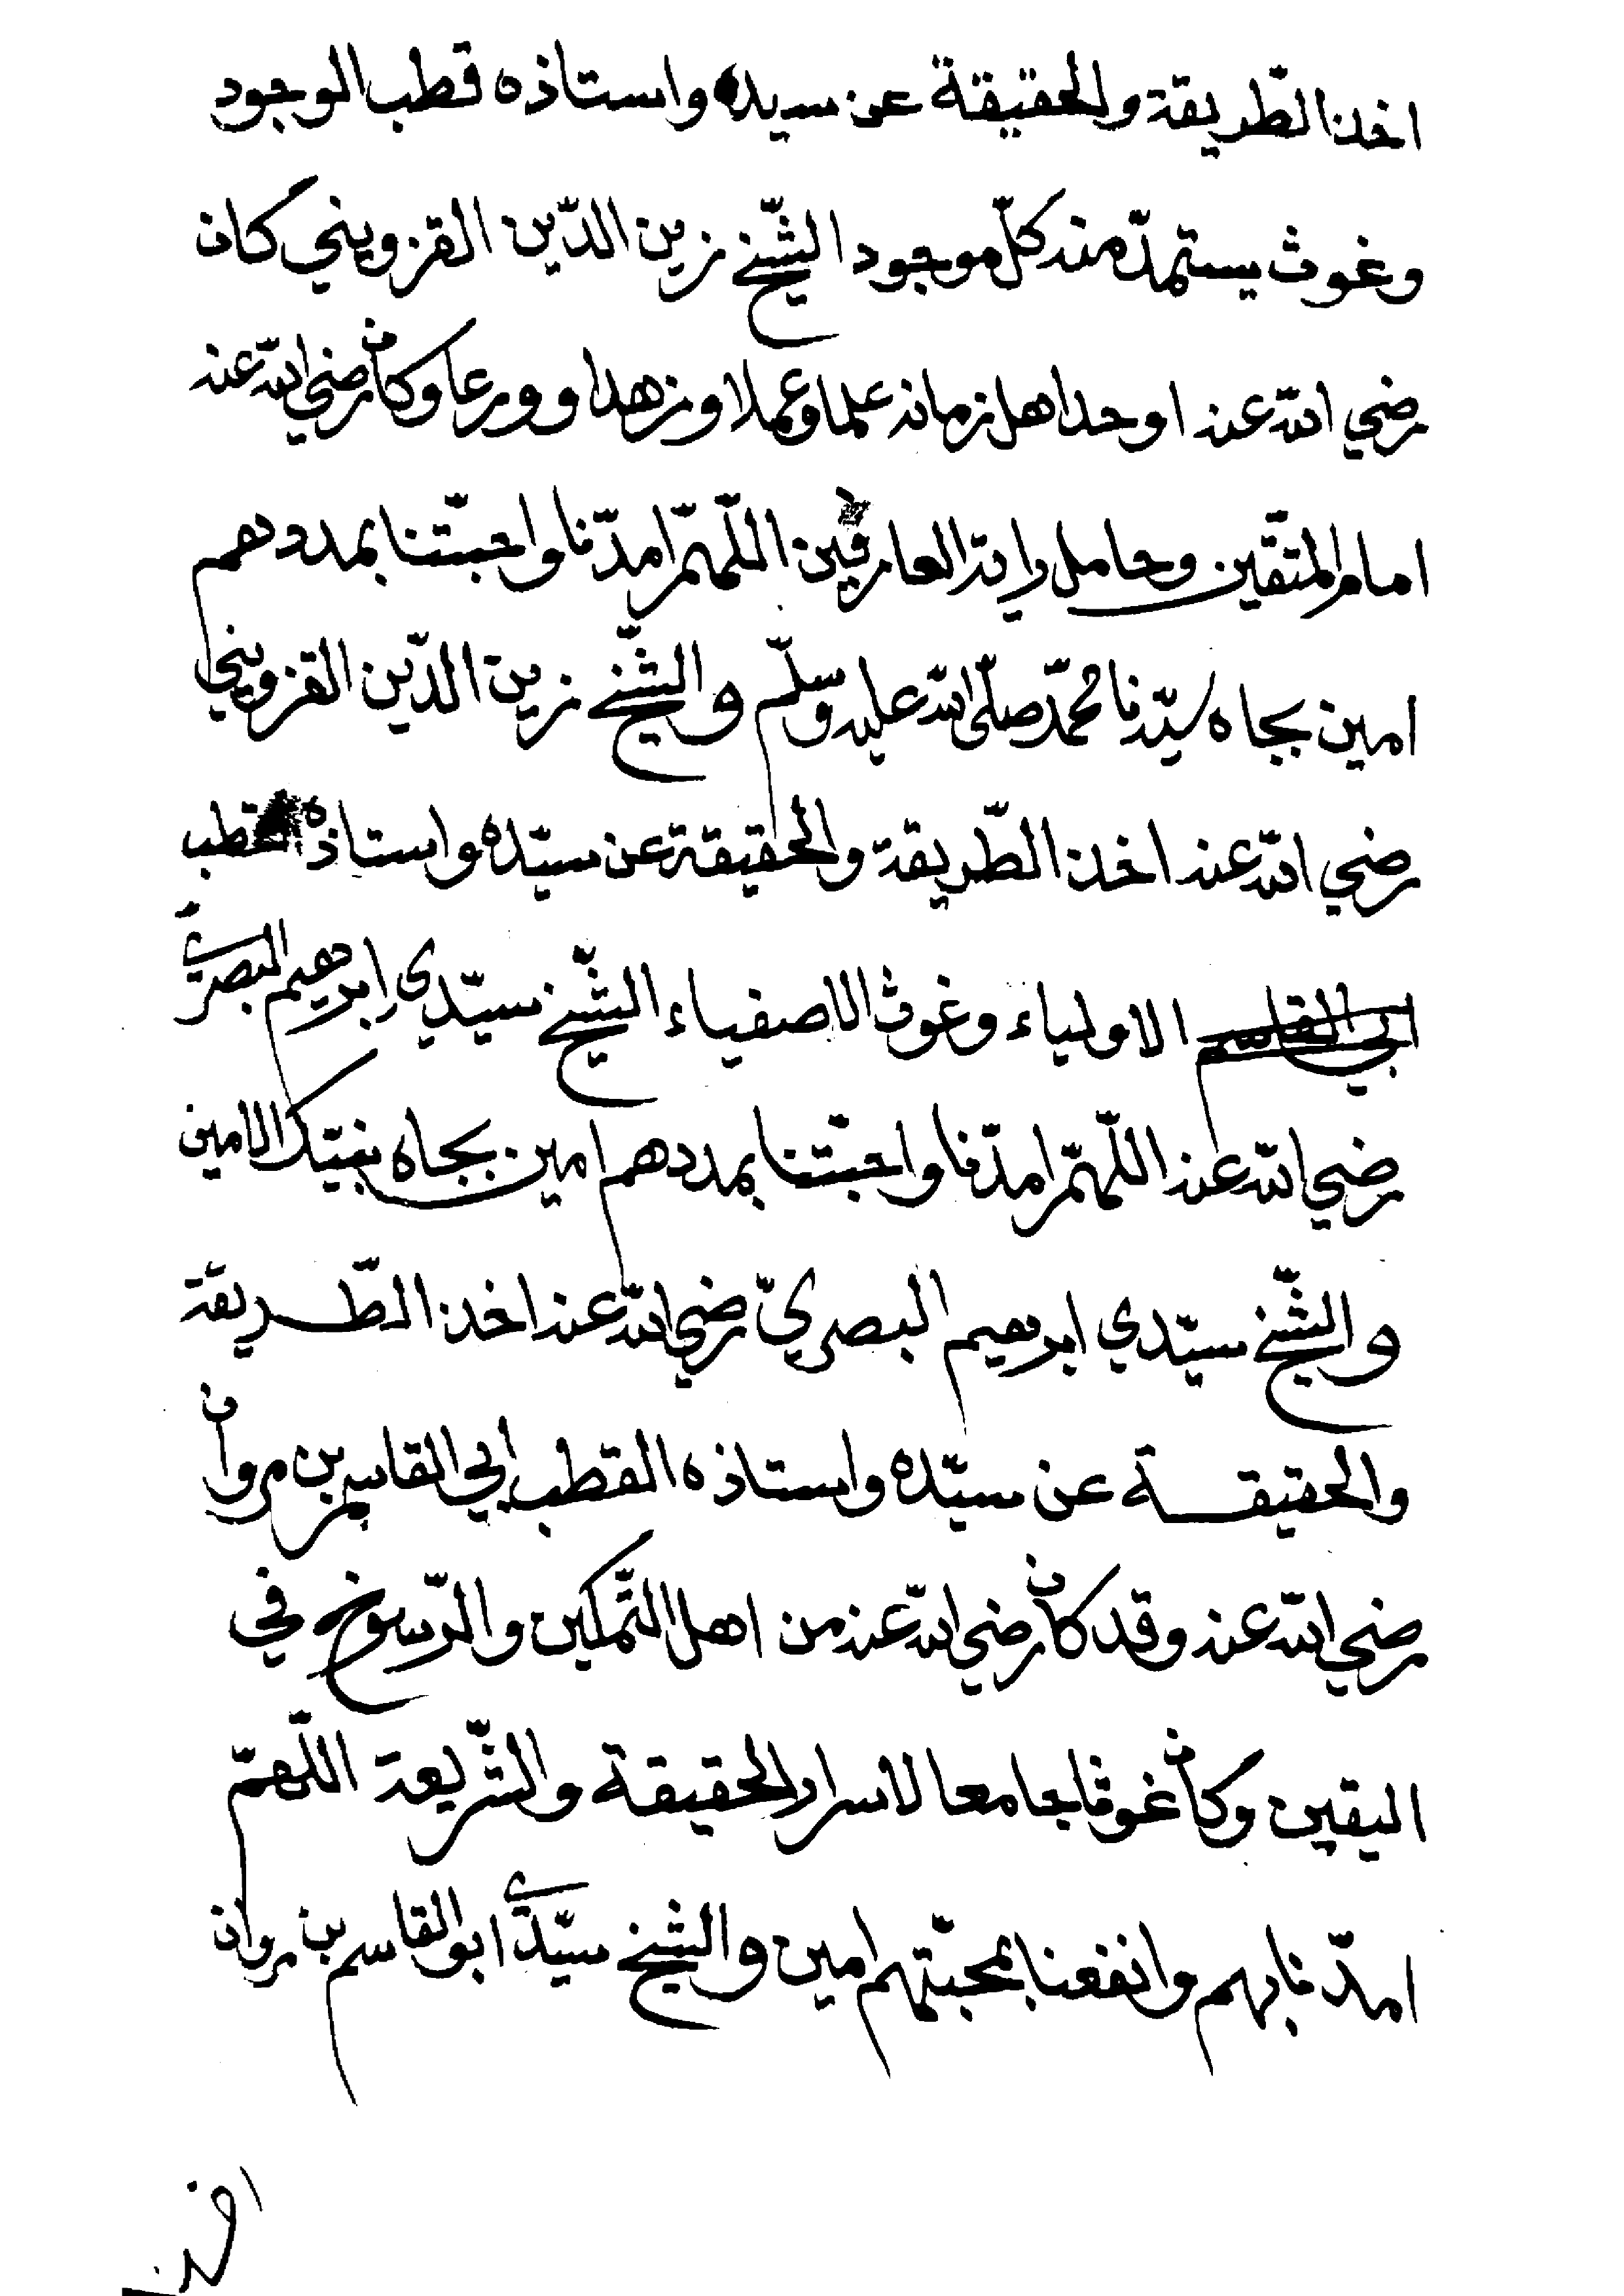 اخذ الطّريقة والحقيقة عن سيده واستاذه قطب الوجود
وغوث يستمدّ منه كلّ موجود الشّيخ زين الدّين القزويني كان
رضي الله عنه اوحد اهل زمانه علما وعملا وزهدا وورعا وكان رضي الله عنه
امام المتّقين وحامل راية العارفين اللّهمّ امدّنا واحبّتنا بمددهم
امين بجاه سيّدنا محمّد صلّى الله عليه وسلّم والشّيخ زين الدّين القزويني
رضي الله عنه اخذ الطّريقة والحقيقة عن سيّده واستاذه قطب
ابي القاسم الاولياء وغوث الاصفياء الشّيخ سيّدي ابرهيم البصريّ
رضي الله عنه اللّهمّ امدّنا واحبّتنا بمددهم امين بجاه نبيّك الامين
والشّيخ سيّدي ابرهيم البصريّ رضي الله عنه اخذ الطّريقة
والحقيقة عن سيّده واستاذه القطب ابي القاسم بن مروان
رضي الله عنه وقد كان رضي الله عنه من اهل التّمكين والرّسوخ في
اليقين وكان غوثا جامعا لاسرار الحقيقة والشّريعة اللّهمّ
امدّنا بهم وانفعنا بمحبّتهم امين والشيخ سيّدي ابو القاسم بن مروان
اخذ